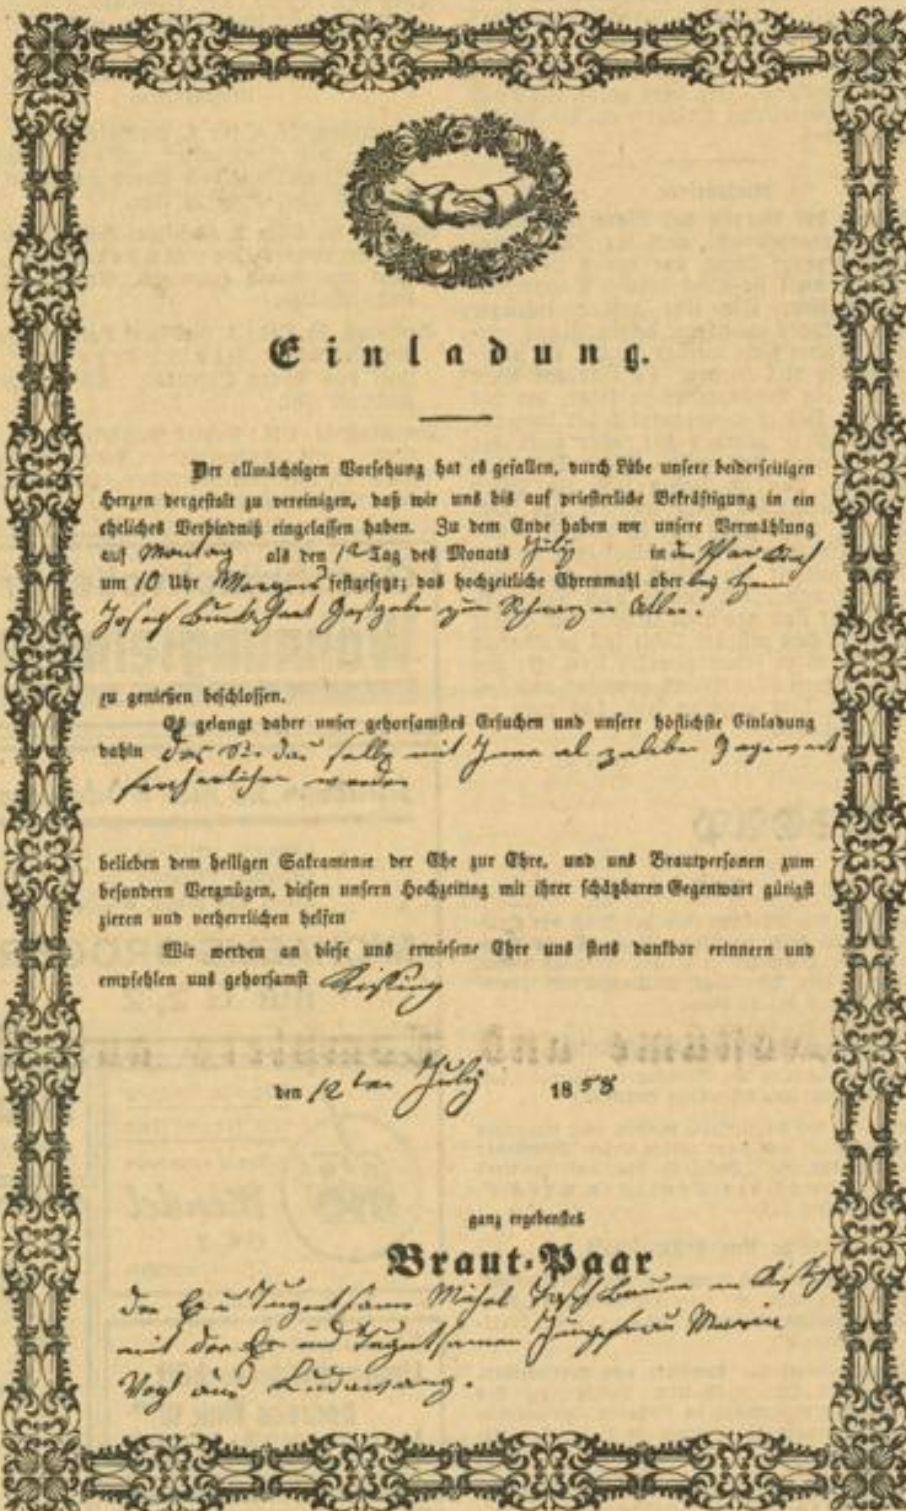 Einladung.
Der allmächtigen Vorsehung hat es gefallen, durch Liebe unsere beiderseitigen
Herzen dergestalt zu vereinigen, daß wir uns bis auf priesterliche Bekräftigung in ein
eheliches Verbindniß eingelassen haben. Zu dem Ende haben wir unsere Vermählung
auf Montag als den 12 Tag des Monats July in der Pfar
um 10 Uhr Morgens festgesetzt; das hochzeitliche Ehrenmahl aber bey Herrn
Josef Gastgeber zum Schwarzen Adler.
zu genießen beschlossen.
Es gelangt daher unser gehorsamstes Ersuchen und unsere höflichste Einladung
dahin das Sie mit Gegenwart
werden
belieben dem heiligen Sakramente der Ehe zur Ehre, und uns Brautpersonen zum
besondern Vergnügen, diesen unsern Hochzeittag mit ihrer schätzbaren Gegenwart gütigst
zieren und verherrlichen helfen
Wir werden an diese uns erwiesene Ehre uns stets dankbar erinnern und
empfehlen uns gehorsamst Kissing
den 12ten July 1858
ganz ergebenstes
Braut-Paar
Der Tugentsame Michal in
mit der und Tugetsamen Jungfrau Maria
Vogl aus